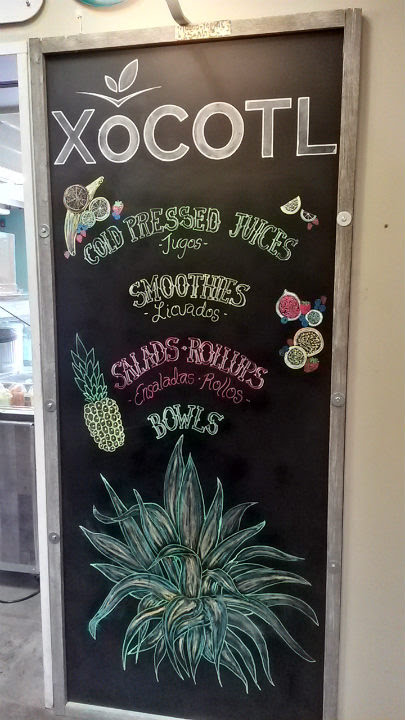 XOCOTL
COLD PRESSED JUICES
-Jugos-
SMOOTHIES
-Licuados-
SALADS · ROLLUPS
-Ensaladas · Rollos-
BOWLS